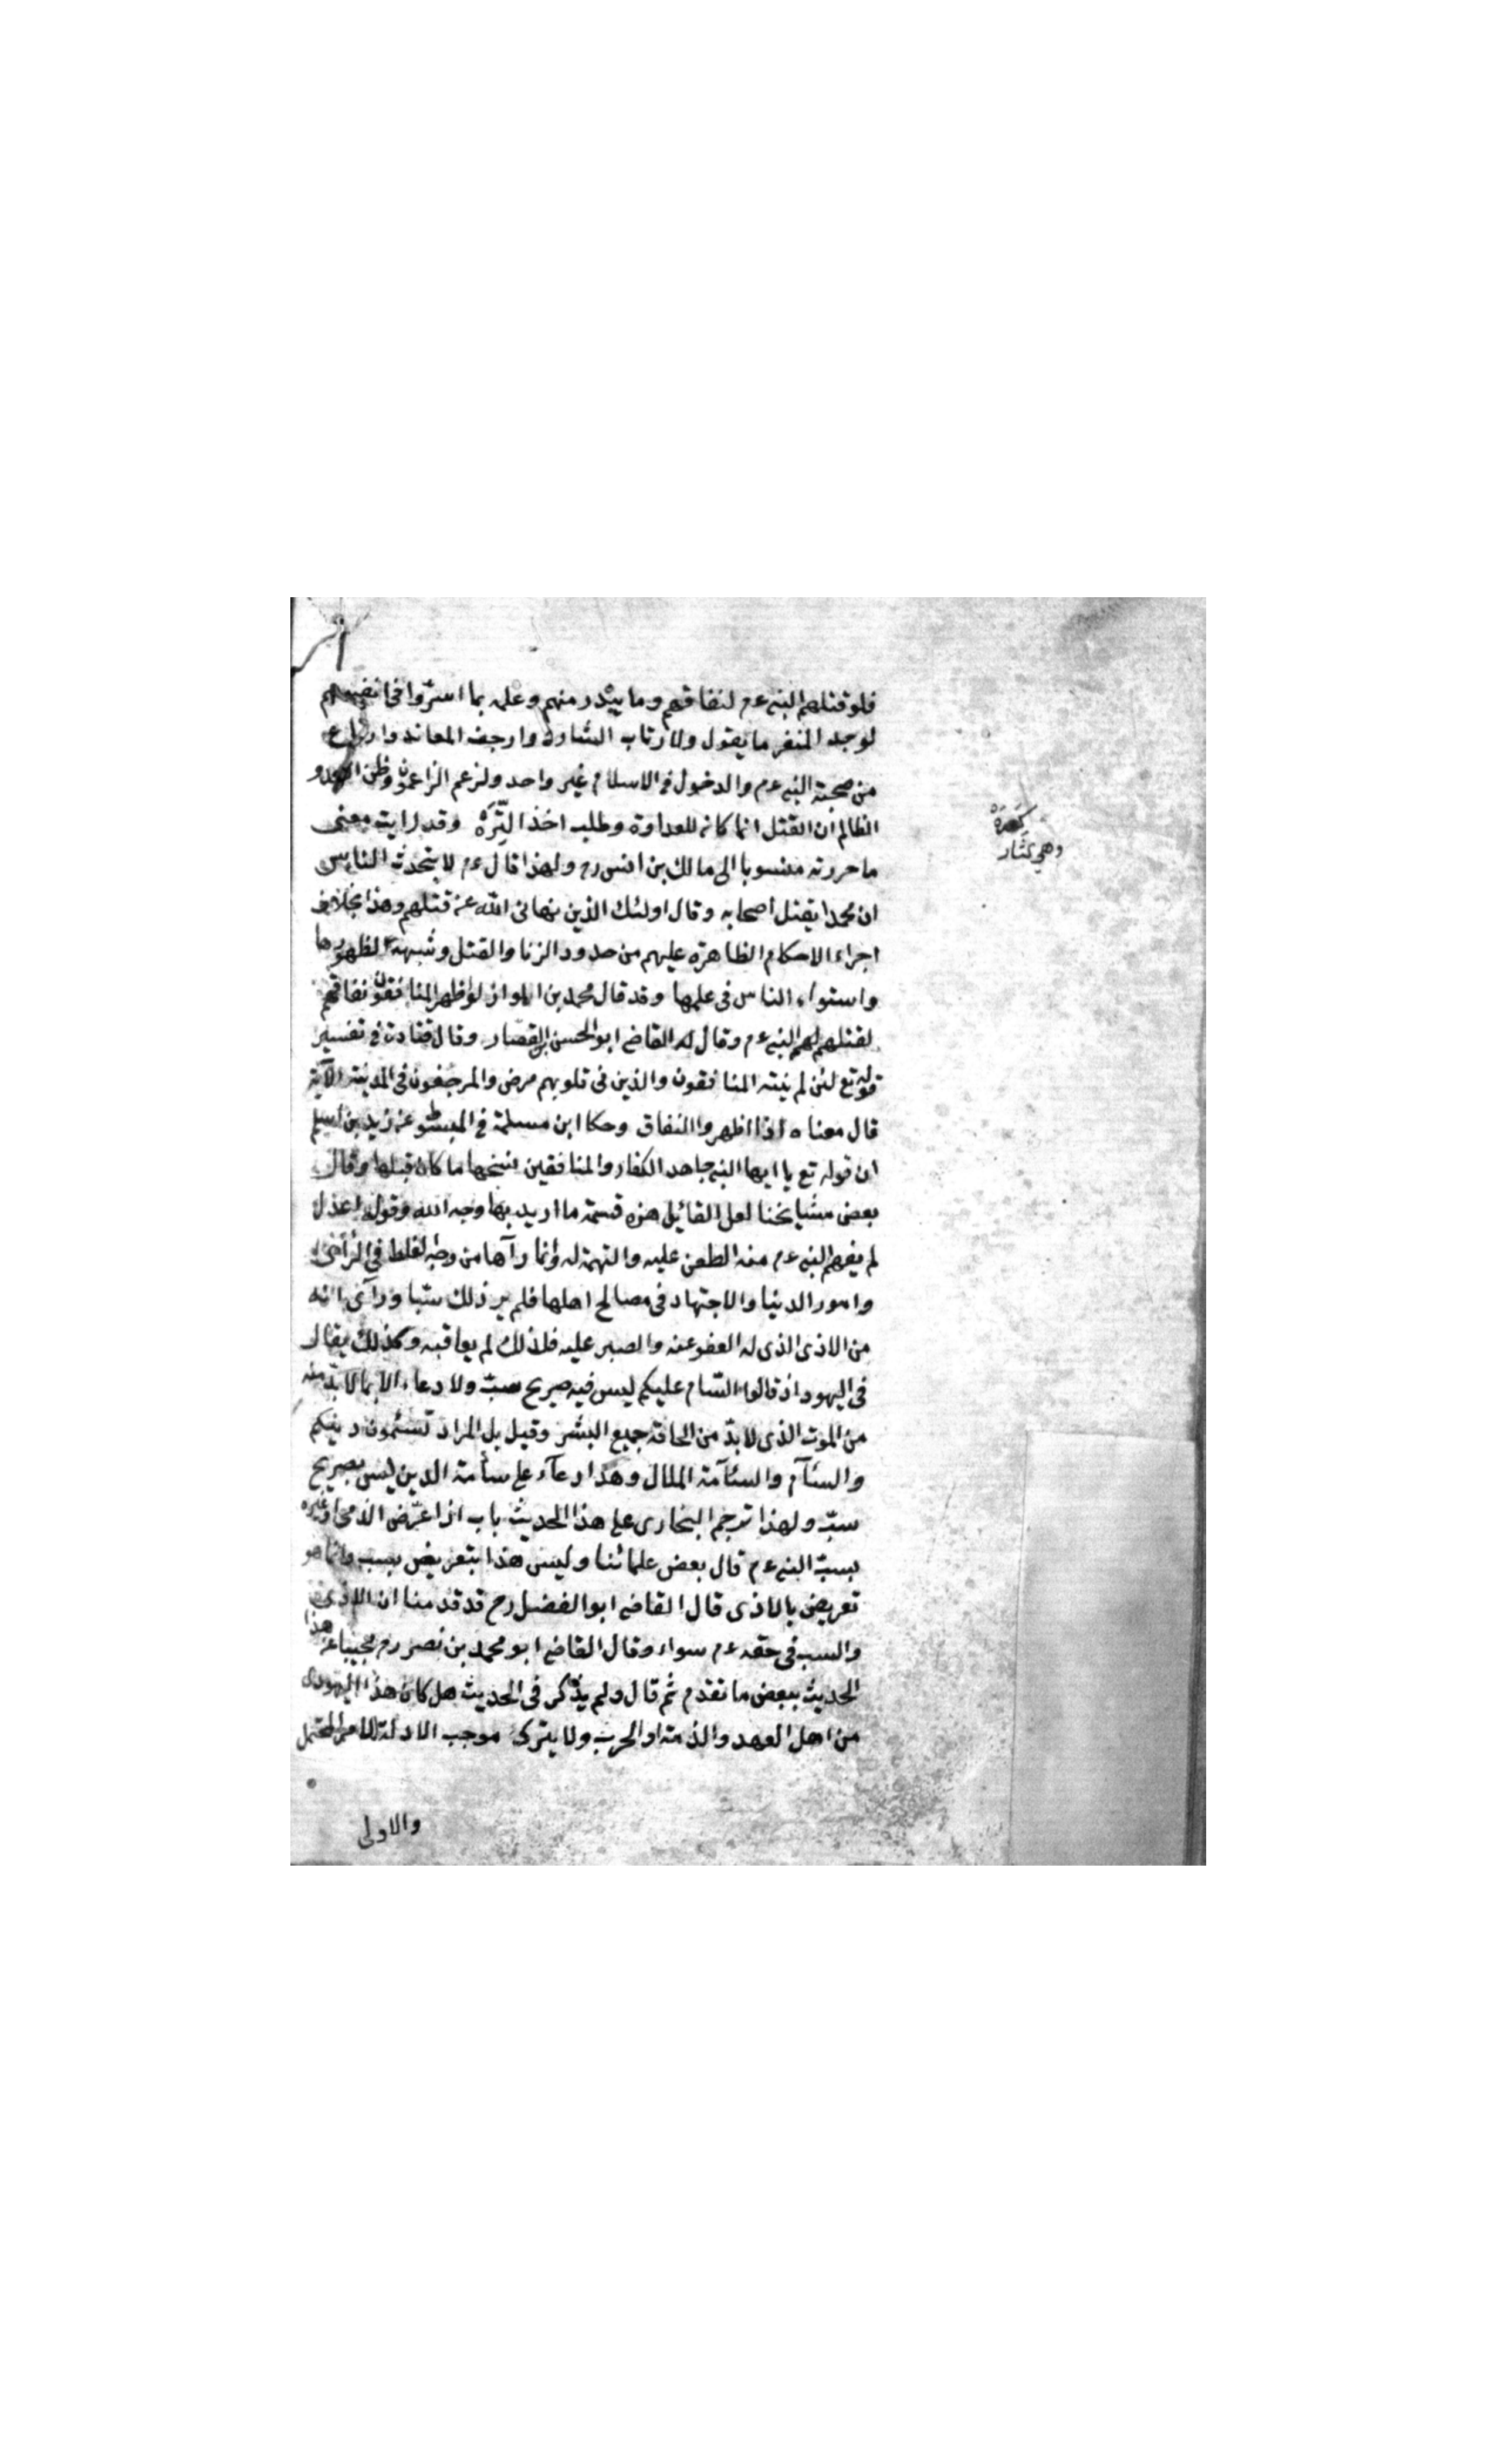 فلو قتلهم النبي عم لنفاقهم وما يبدر منهم وعلمه بما اسرّوا في انفسهم
لوجد المنفر ما يقول ولارتاب الشارد وارجف المعاند وارتاع
من صحبة النبي عم والدخول في الاسلام غير واحد ولزعم الزاعمون وظن العدو
الظالم ان القتل انما كان للعداوة وطلب اخذ التِّرَة وقد رايت معنى
ما حررته منسوبا الى مالك بن انس رح ولهذا قال عم لا يتحدث الناس
ان محمدا يقتل اصحابه وقال اولئك الذين نهاني الله عن قتلهم وهذا بخلاف
اجراء الاحكام الظاهرة عليهم من حدود الزنا والقتل وشبهه لظهورها
واستواء الناس في علمها وقد قال محمد بن المواز لو اظهر المنافقون نفاقهم
لقتلهم النبي عم وقال له القاضي ابو الحسن بن القصار وقال قتادة في تفسير
قوله تع لئن لم ينته المنافقون والذين في قلوبهم مرض والمرجفون في المدينة الآية
قال معناه اذا اظهروا النفاق وحكا ابن مسلمة في المبسوط عن زيد بن اسلم
ان قوله تع يا ايها النبي جاهد الكفار والمنافقين نسخها ما كان قبلها وقال
بعض مشايخنا لعل القائل هذه قسمة ما اريد بها وجه الله وقوله اعدل
لم يفهم النبي عم منه الطعن عليه والتهمة له وانما رآها من وجه الغلط في الرأى
وامور الدنيا والاجتهاد في مصالح اهلها فلم ير ذلك سبّا ورآى انه
من الاذى الذى له العفو عنه والصبر عليه فلذلك لم يعاقبه وكذلك يقال
في اليهود اذ قالوا السّام عليكم ليس فيه صريح سبّ ولا دعاء الا بما لابدّ منه
من الموت الذى لابدّ من لحاقه جميع البشر وقيل بل المراد تسئمون دينكم
والسآم والسئآمة الملال وهذا دعآء على سأمة الدين ليس بصريح
سبّ ولهذا ترجم البخارى على هذا الحديث باب اذا عرّض الذمى او غيره
بسبّ النبي عم قال بعض علمائنا وليس هذا بتعريض بسبّ وانما هو
تعريض بالاذى قال القاضي ابو الفضل رح قد قدمنا ان الاذى
والسب في حقه عم سواء وقال القاضي ابو محمد بن نصر رح مجيبا عن هذا
الحديث ببعض ما تقدم ثم قال ولم يذكر في الحديث هل كان هذا اليهودى
من اهل العهد والذمة او الحرب ولا يترك موجب الادلة للامر المحتمل
والاولى
وهي كثار